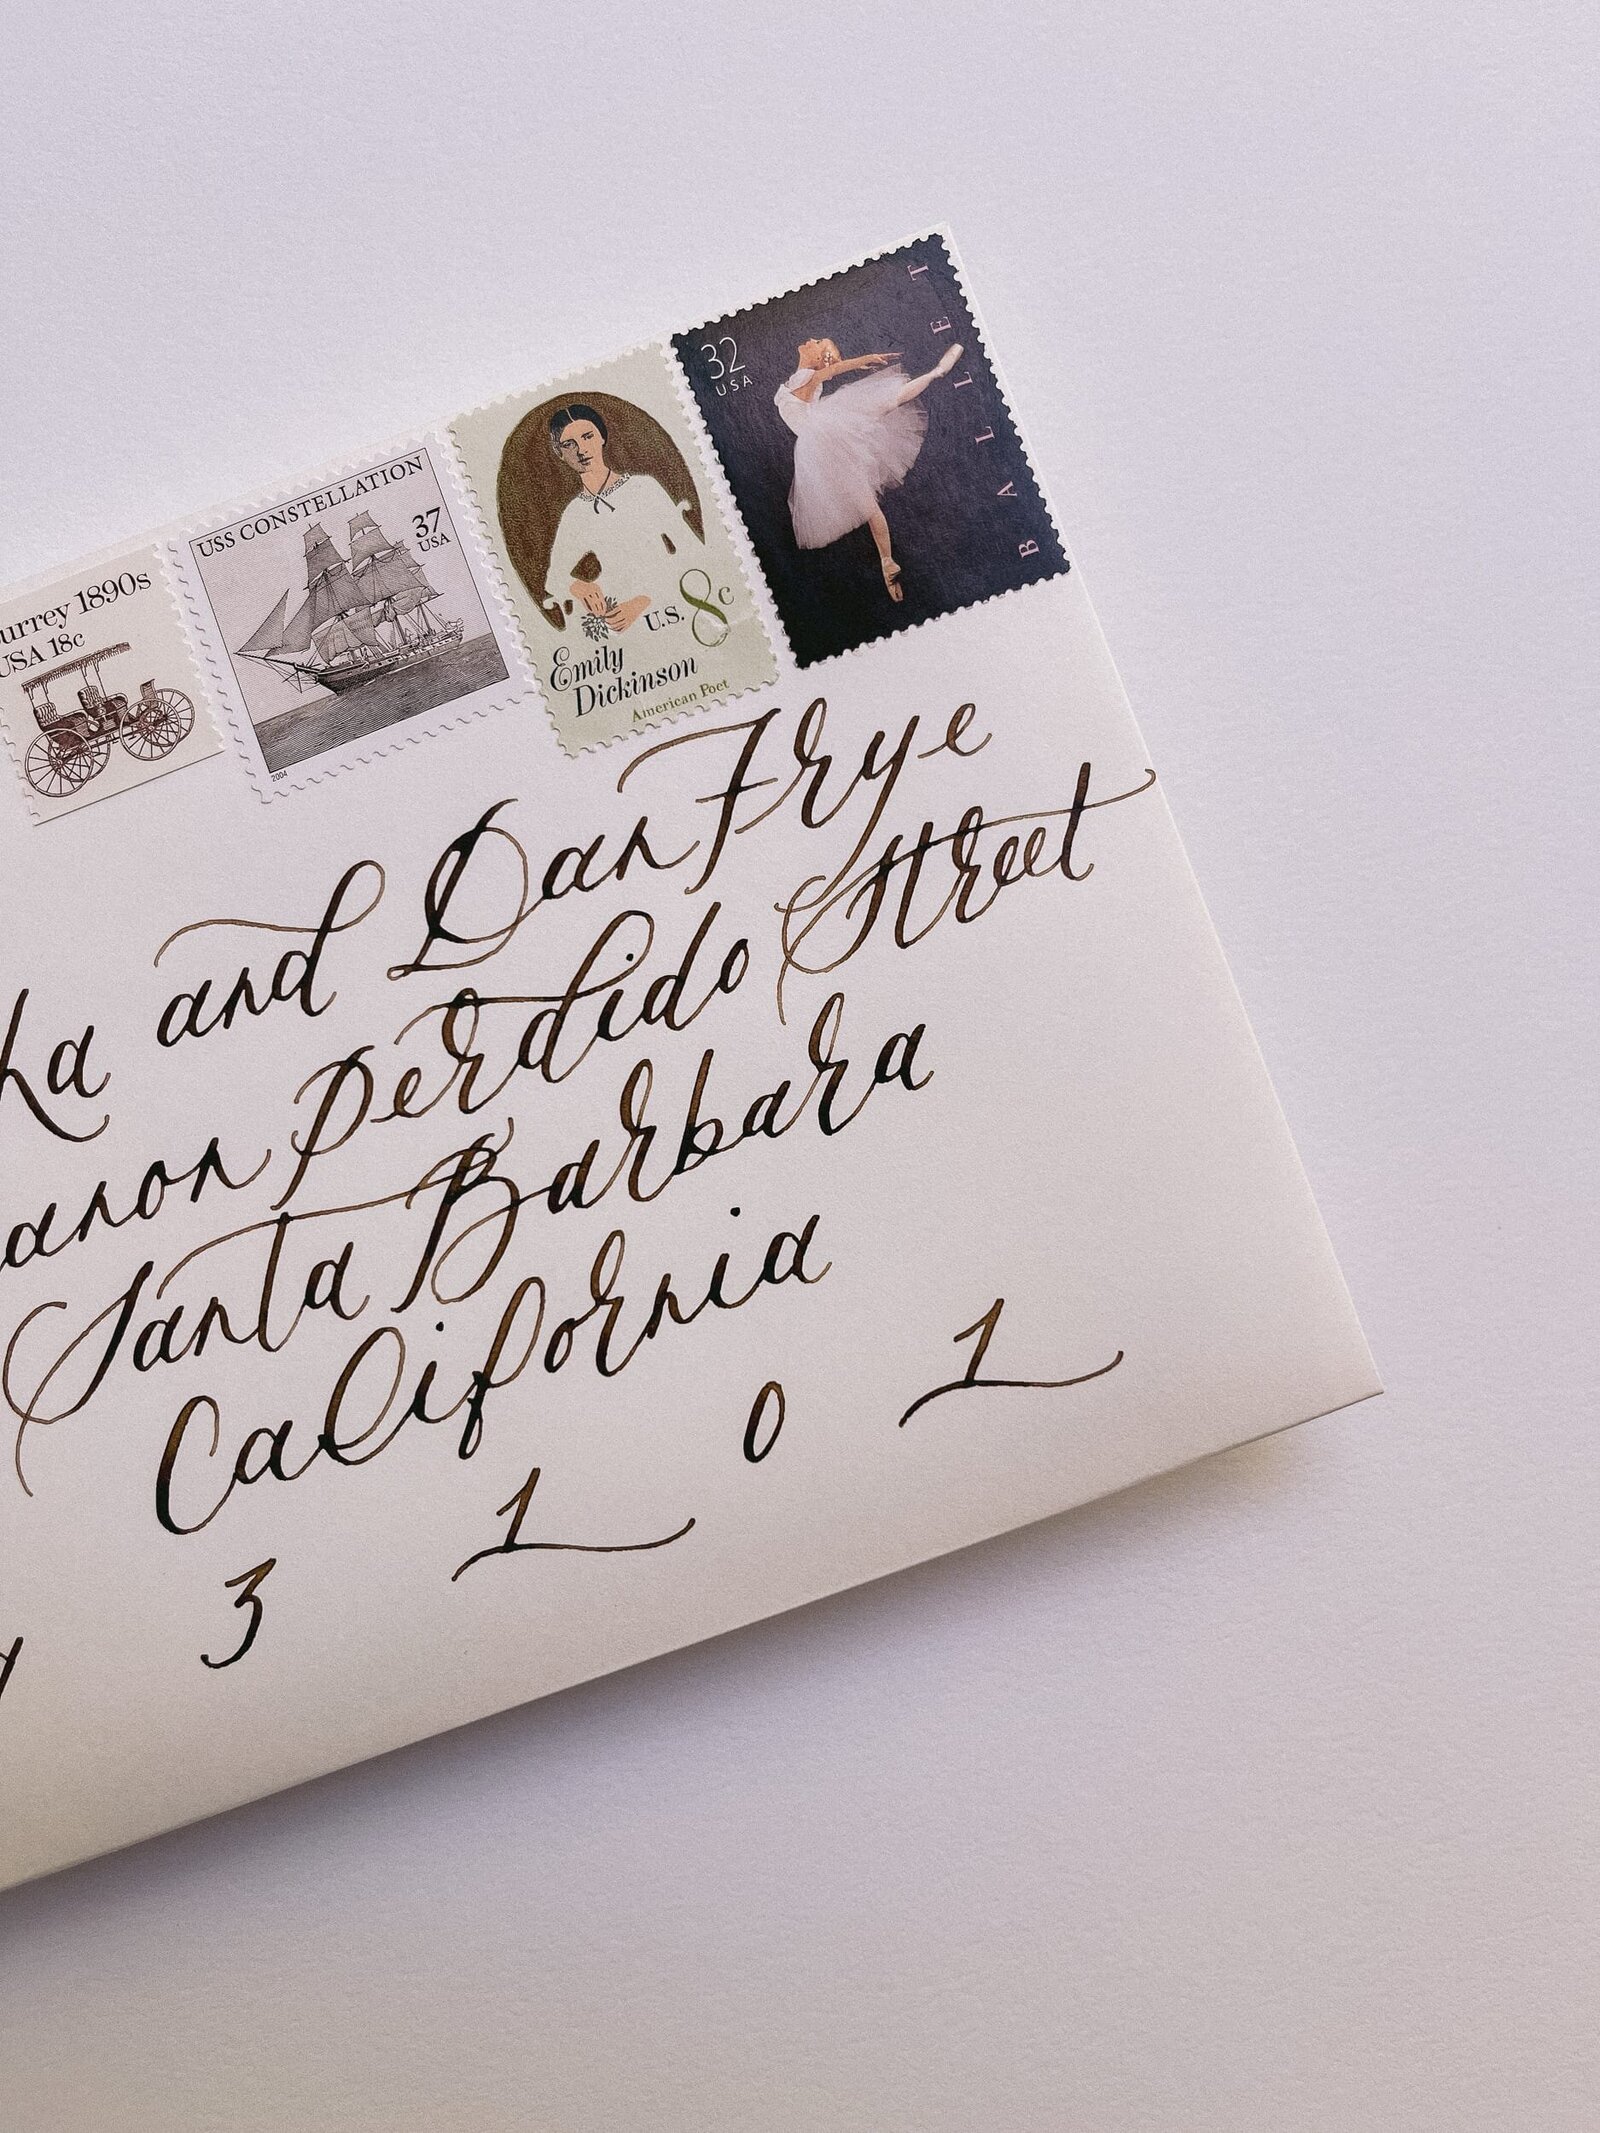 urrey 1890s
USA 18c
USS CONSTELLATION
37
USA
2004
U.S. 8c
Emily
Dickinson
American Poet
32
USA
BALLET
ha and Dan Frye
anon Perdido Street
Santa Barbara
California
3 1 0 1